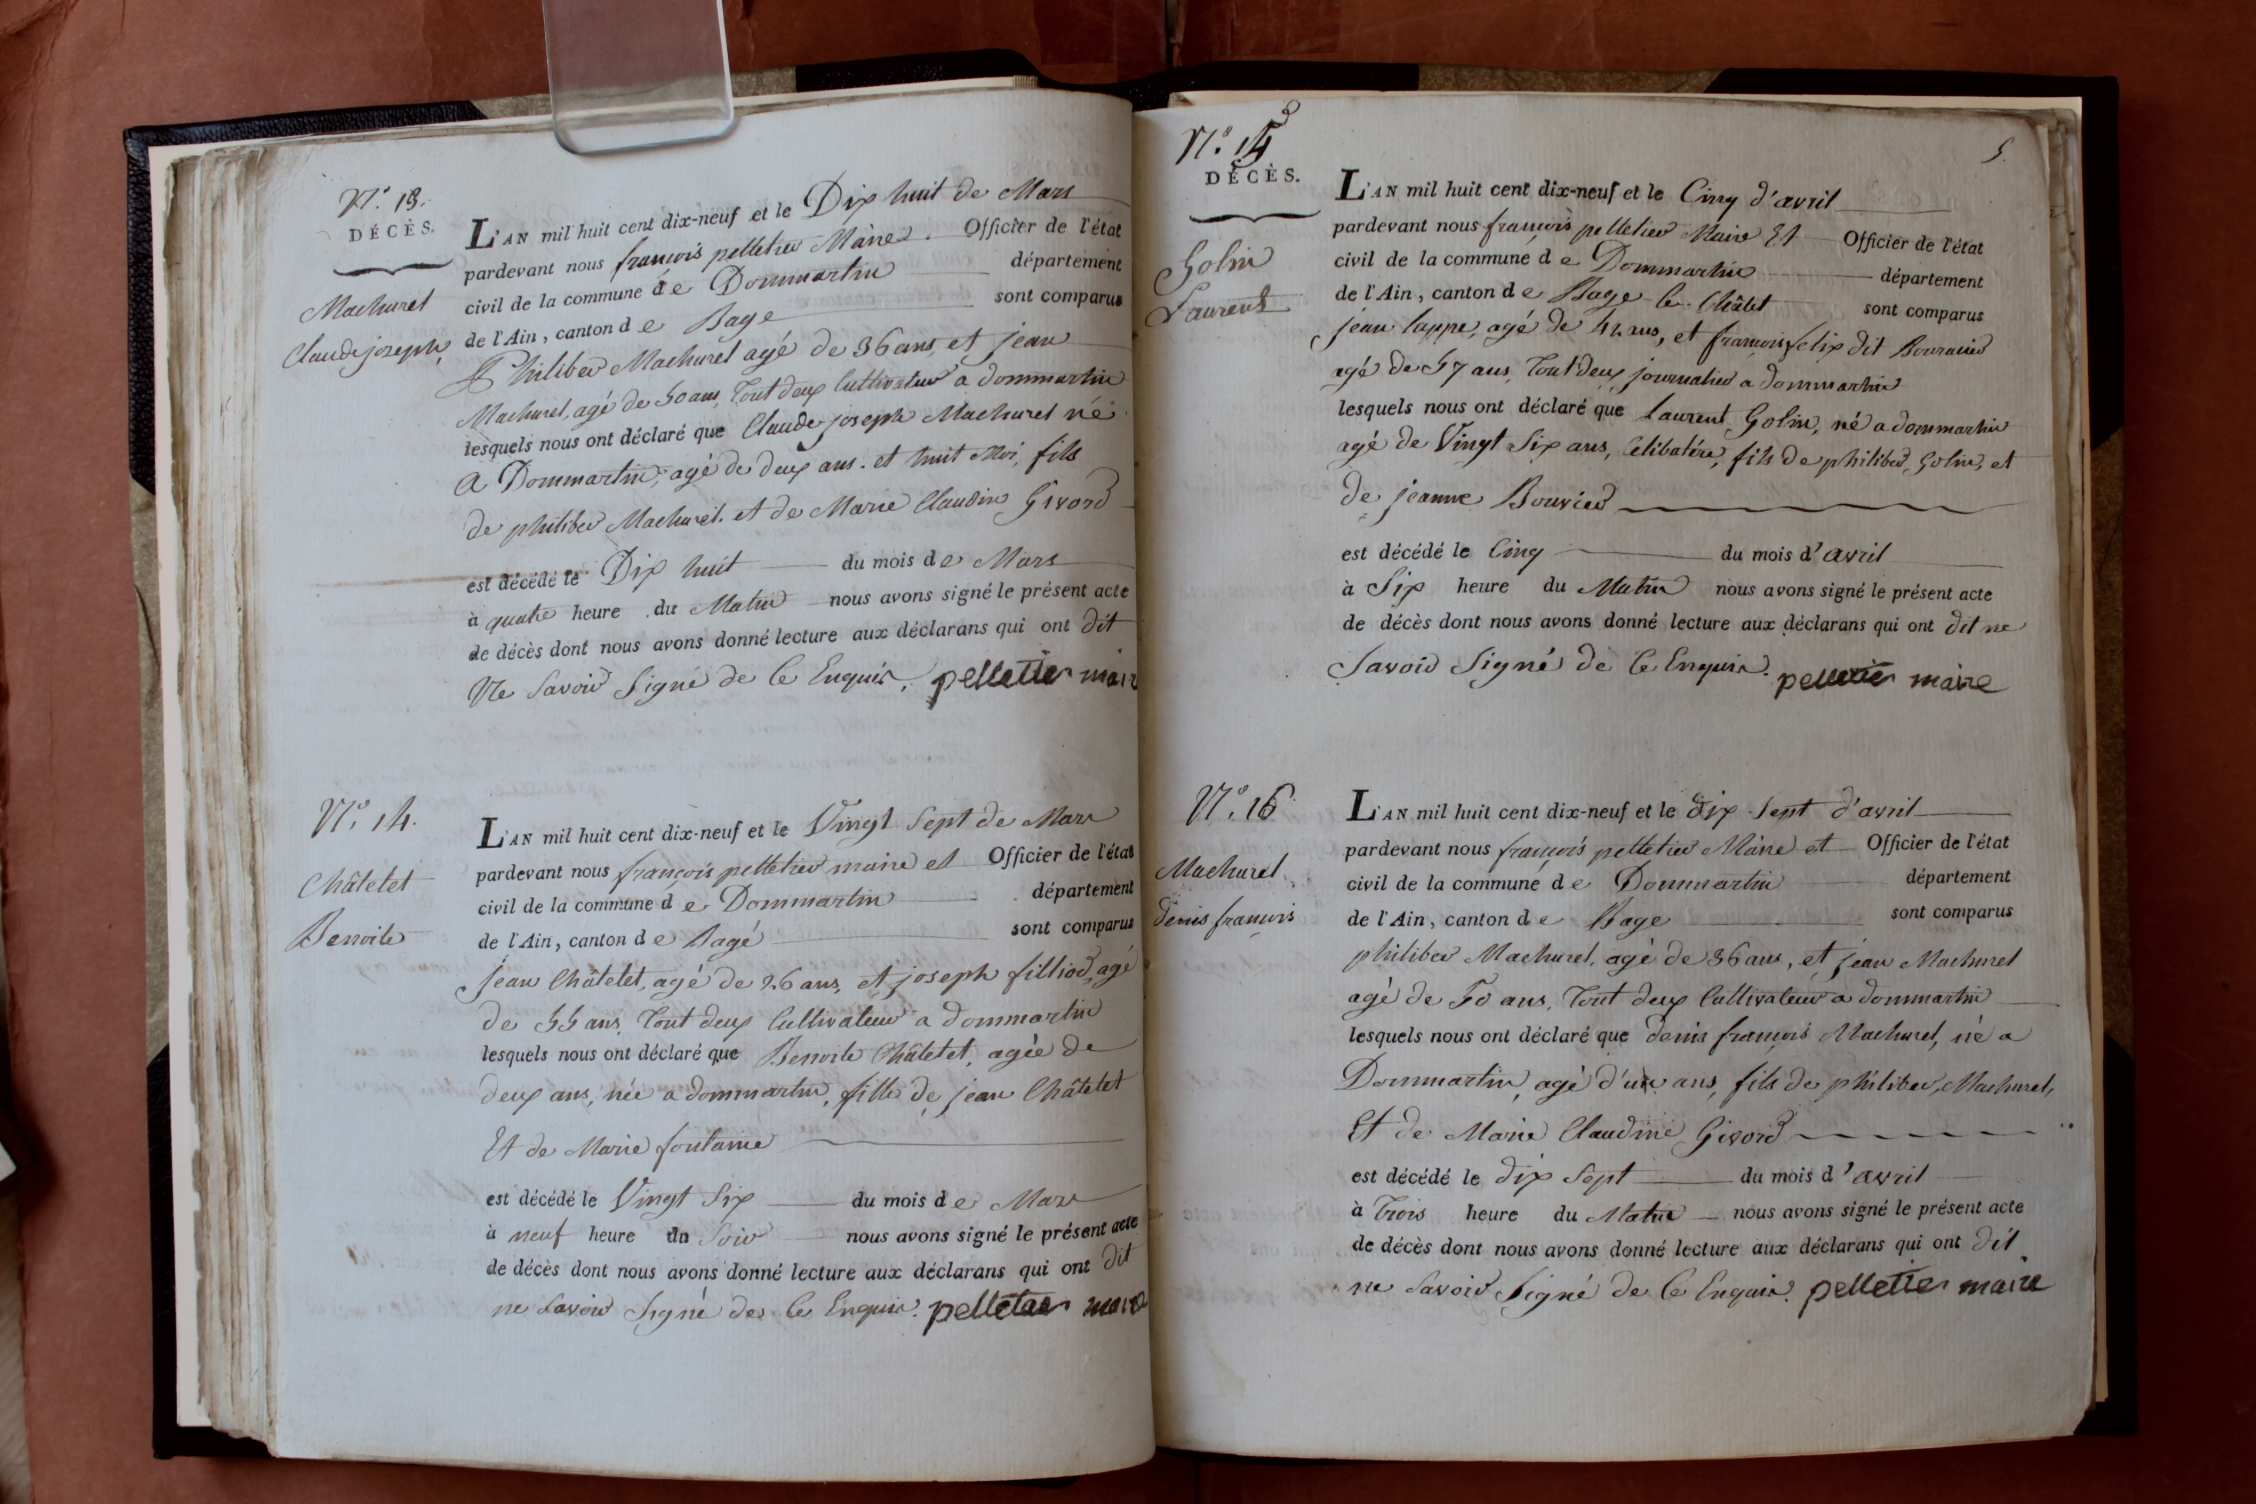 N.° 13.
DÉCÈS.
Machurel
Claude joseph
L'AN mil huit cent dix-neuf et le Dix huit de Mars
pardevant nous françois pelletier Maire. Officier de l'état
civil de la commune de Dommartin département
de l'Ain, canton de Bage sont comparus
Philiber Machurel agé de 36 ans, et jean
Machurel, agé de 50 ans, Tout deux Cultivateur a dommartin
lesquels nous ont déclaré que Claude joseph Machurel né
A Dommartin, agé de deux ans. et huit Moi, fils
de philiber Machurel. et de Marie Claudin Givord
est décédé le Dix huit du mois de Mars
à quatre heure du Matin nous avons signé le présent acte
de décès dont nous avons donné lecture aux déclarans qui ont dit
Ne Savoir Signé de Ce Enquis. pelletier maire
N.° 14.
Châtelet
Benoite
L'AN mil huit cent dix-neuf et le Vingt Sept de Mars
pardevant nous françois pelletier maire et Officier de l'état
civil de la commune de Dommartin département
de l'Ain, canton de Bagé sont comparus
jean Châtelet, agé de 26 ans, et joseph filliod, agé
de 55 ans, Tout deux Cultivateur a dommartin
lesquels nous ont déclaré que Benoite Châtelet, agée de
deux ans, née a dommartin, fille de jean Châtelet
Et de Marie fontaine
est décédé le Vingt Six du mois de Mars
à neuf heure du Soir nous avons signé le présent acte
de décès dont nous avons donné lecture aux déclarans qui ont dit
ne Savoir Signé de Ce Enquis. pelletier maire
5.
N.° 15
DÉCÈS.
Golin
Laurent
L'AN mil huit cent dix-neuf et le Cinq d'avril
pardevant nous françois pelletier Maire Et Officier de l'état
civil de la commune de Dommartin département
de l'Ain, canton de Bage le Châtel sont comparus
jean lappe, agé de 42 ans, et françois felix dit Bouvier
agé de 57 ans, Tout deux journalier a dommartin
lesquels nous ont déclaré que Laurent Golin, né a dommartin
agé de Vingt Six ans, Célibatére, fils de philiber, Golin, et
de jeanne Bouvier
est décédé le Cinq du mois d'avril
à Six heure du Matin nous avons signé le présent acte
de décès dont nous avons donné lecture aux déclarans qui ont dit ne
Savoir Signé de Ce Enquis. pelletier maire
N.° 16
Machurel
denis françois
L'AN mil huit cent dix-neuf et le dix Sept d'avril
pardevant nous françois pelletier Maire et Officier de l'état
civil de la commune de Dommartin département
de l'Ain, canton de Bage sont comparus
philiber Machurel, agé de 36 ans, et jean Machurel
agé de 50 ans, Tout deux Cultivateur a dommartin
lesquels nous ont déclaré que denis françois Machurel, né a
Dommartin, agé d'un ans, fils de philiber, Machurel,
Et de Marie Claudine Givord
est décédé le dix Sept du mois d'avril
à Trois heure du Matin nous avons signé le présent acte
de décès dont nous avons donné lecture aux déclarans qui ont dit
ne Savoir Signé de Ce Enquis. pelletier maire